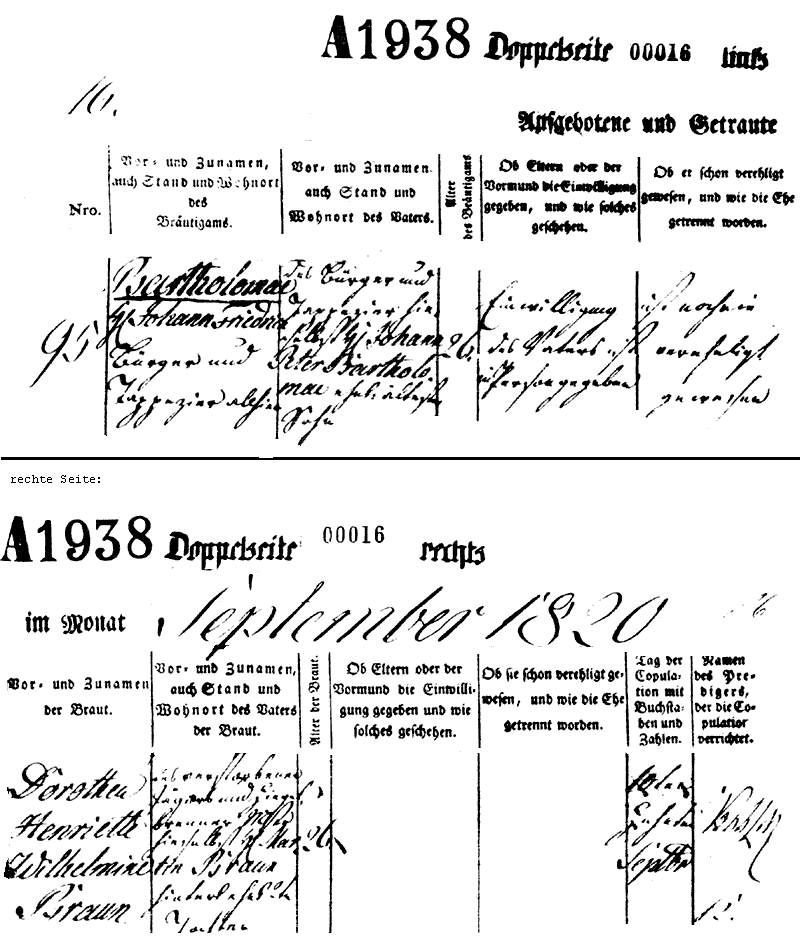 A1938 Doppelseite 00016 links
16.
Aufgebotene und Getraute
Nro.
Vor- und Zunamen,
auch Stand und Wohnort
des
Bräutigams.
Vor- und Zunamen
auch Stand und
Wohnort des Vaters.
Alter
des Bräutigams
Ob Eltern oder der
Vormund die Einwilligung
gegeben, und wie solches
geschehen.
Ob er schon verehligt
gewesen, und wie die Ehe
getrennt worden.
95
Bartholomae
Johann Friedrich
Bürger und
Tappezier allhier
des Bürger und
Tappezier hie-
selbst Johann
Peter Bartholo
mae ehel. ältester
Sohn
26.
Einwilligung
des Vaters ist
in Person gegeben
ist noch nie
vereheligt
gewesen
rechte Seite:
A1938 Doppelseite 00016 rechts
im Monat September 1820
16
Vor- und Zunamen
der Braut.
Vor- und Zunamen,
auch Stand und
Wohnort des Vaters
der Braut.
Alter der Braut.
Ob Eltern oder der
Vormund die Einwilli-
gung gegeben und wie
solches geschehen.
Ob sie schon verehligt ge-
wesen, und wie die Ehe
getrennt worden.
Tag der
Copula-
tion mit
Buchsta-
ben und
Zahlen.
Namen
des Pre-
digers,
der die Co-
pulation
verrichtet.
Dorothea
Henriette
Wilhelmine
Braun
des verstorbenen
Jägers und Ziegel
brenner
hieselbst Mar
tin Braun
hinterl. ehel.
Tochter
26
10ten
zehnten
Septbr